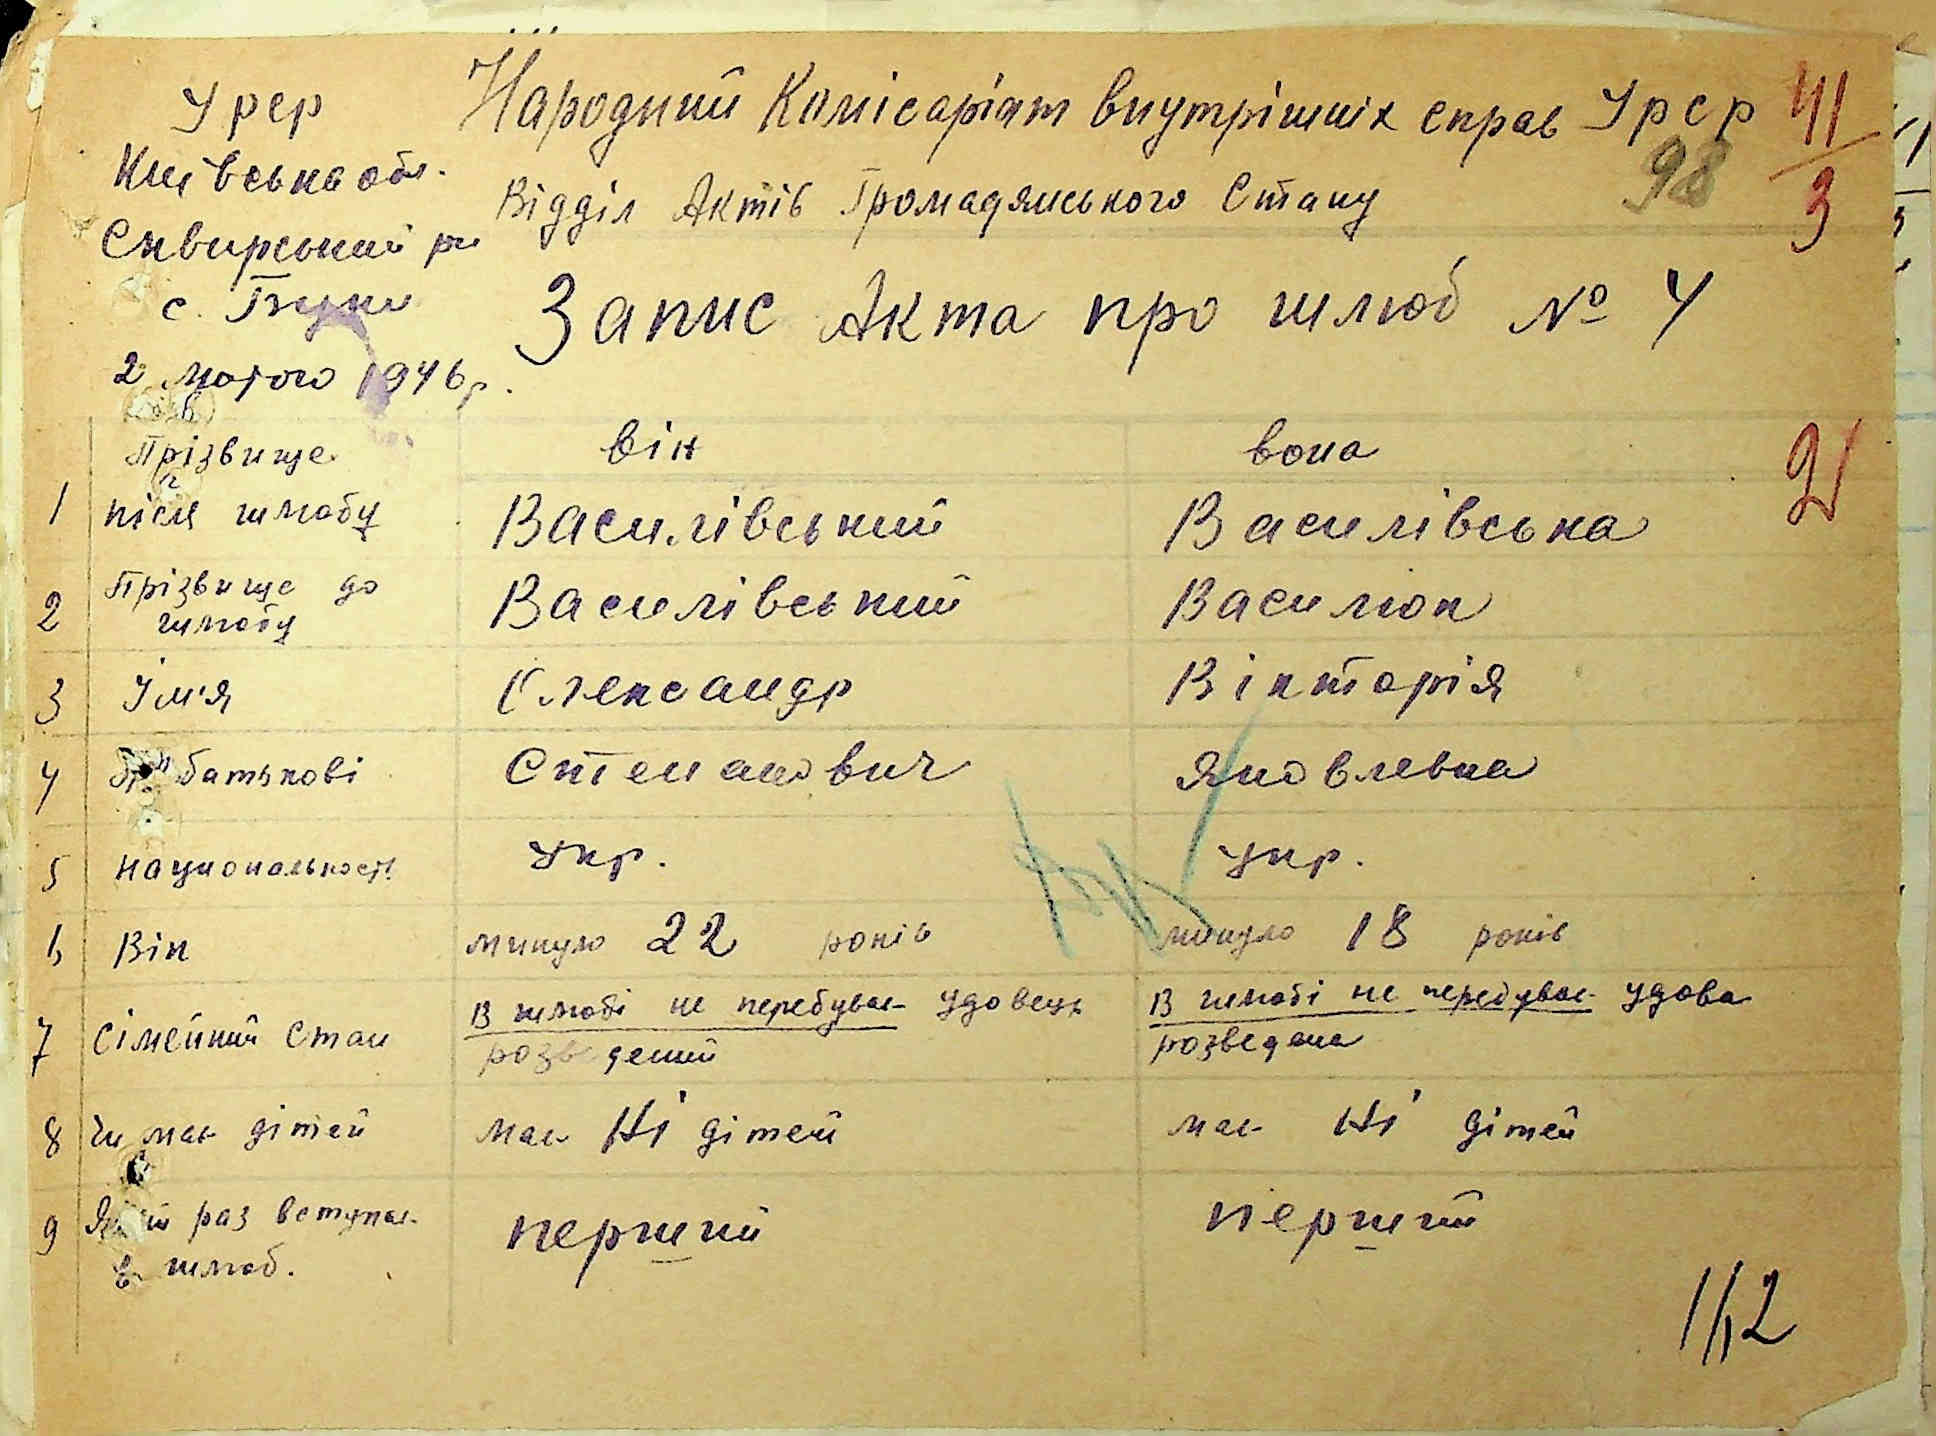 УРСР
Київська обл.
Сквирський р-н
с. Буки
2 лютого 1946 р.
Народний Комісаріят внутрішніх справ УРСР
Відділ Актів Громадянського Стану
Запис Акта про шлюб № 4
98
41/3
21
він вона
1 Прізвище після шлюбу Василівський Василівська
2 Прізвище до шлюбу Василівський Василюк
3 Ім'я Олександр Вікторія
4 По батькові Степанович Яковлевна
5 Национальность Укр. Укр.
6 Вік минуло 22 років минуло 18 років
7 Сімейний стан В шлюбі не перебуває удовець розведений В шлюбі не перебуває удова розведена
8 Чи має дітей має Ні дітей має Ні дітей
9 Який раз вступає в шлюб. перший перший